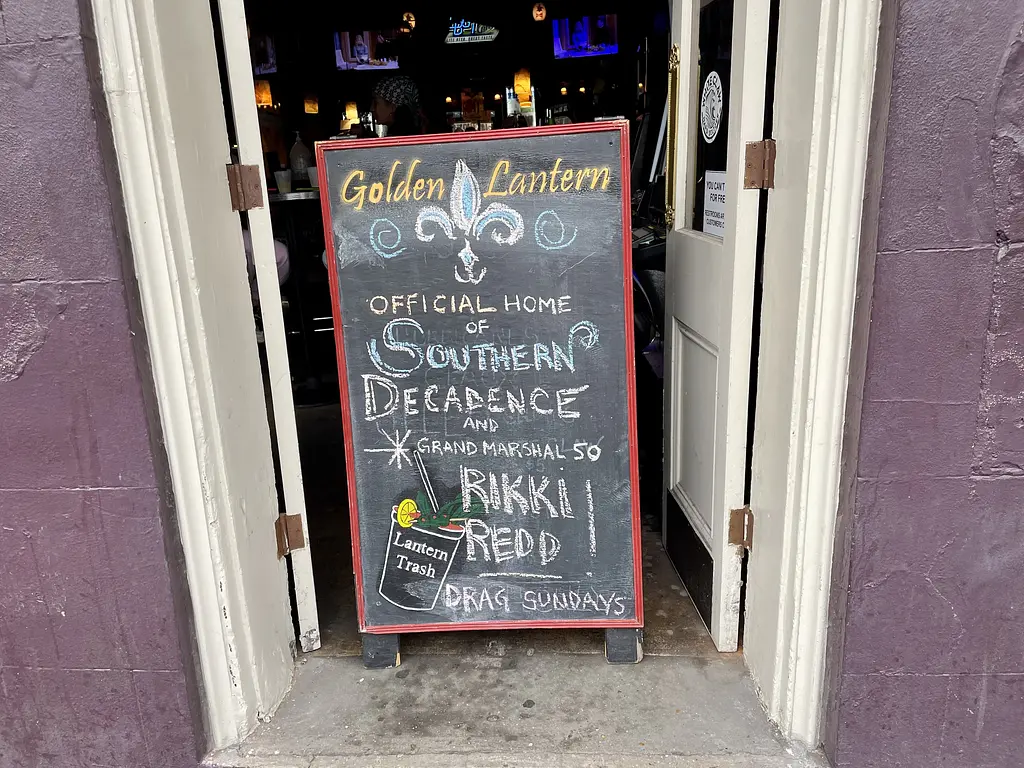 Golden Lantern
OFFICIAL HOME
OF
SOUTHERN
DECADENCE
AND
GRAND MARSHAL 50
RIKKI
REDD
Lantern
Trash
DRAG SUNDAYS
YOU CAN'T
FOR FRE
RESTROOMS AR
CUSTOMERS O